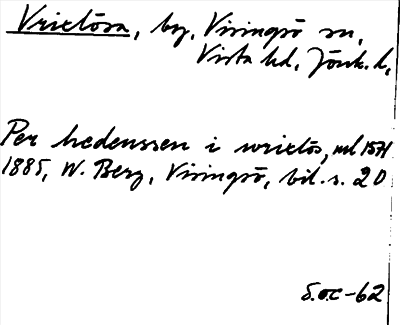 Vrixlösa, by, Visingsö sn,
Vista hd, Jönk. l,
Per hedenssen i wrixlös, ml 1571
1885, W. Berg, Visingsö, bil. s. 20
S.o.c-62